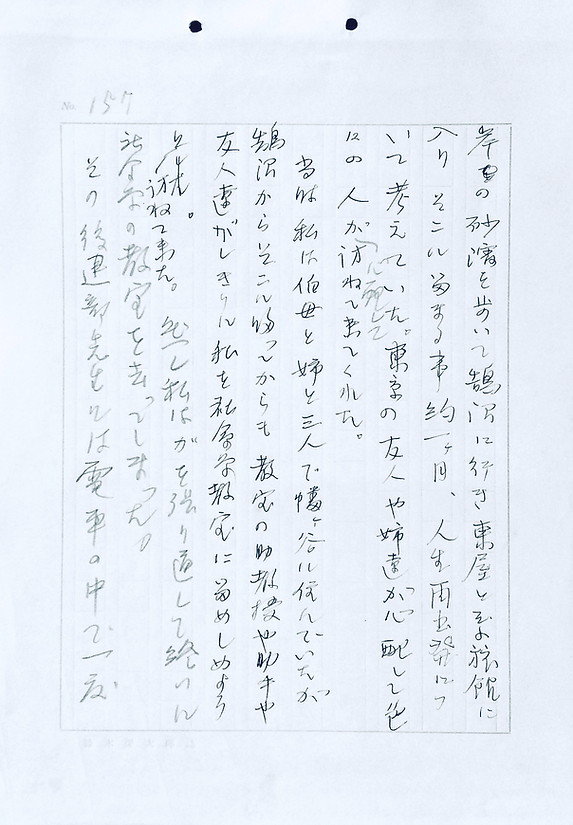 No. 157
岸の砂濱を歩いて鵠沼に行き東屋と云ふ旅館に
入り そこに留まる事 約一ヶ月、人生再出発につ
いて考えていた。東京の友人や姉達が心配して色
々の人が心配して訪ねて来てくれた。
当時 私は伯母と姉と三人で幡ヶ谷に住んでいたが
鵠沼からそこに帰ってからも 教室の助教授や助手や
友人達がしきりに私を社会学教室に留めしめよう
と訪ねて来た。然し私はがを張り通して終いに
社会学の教室を去ってしまった。
その後建部先生とは電車の中で一度